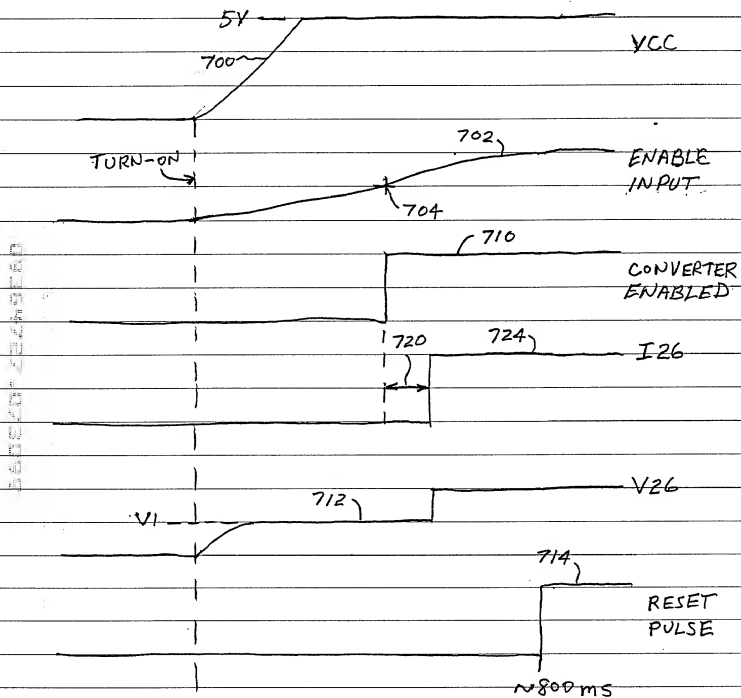 5V
VCC
700
702
TURN-ON
ENABLE
INPUT
704
710
CONVERTER
ENABLED
720
724
I26
V26
V1
712
714
RESET
PULSE
~800 ms